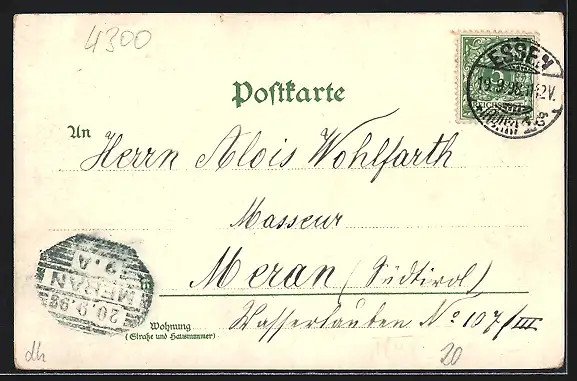 4300
ESSEN
19.9.98.11-12V.
5
REICHSPOST
Postkarte
An
Herrn Alois Wohlfarth
Masseur
Meran (Südtirol)
Wasserlauben No 107/III
MERAN
20.9.98
Wohnung
(Straße und Hausnummer)
20